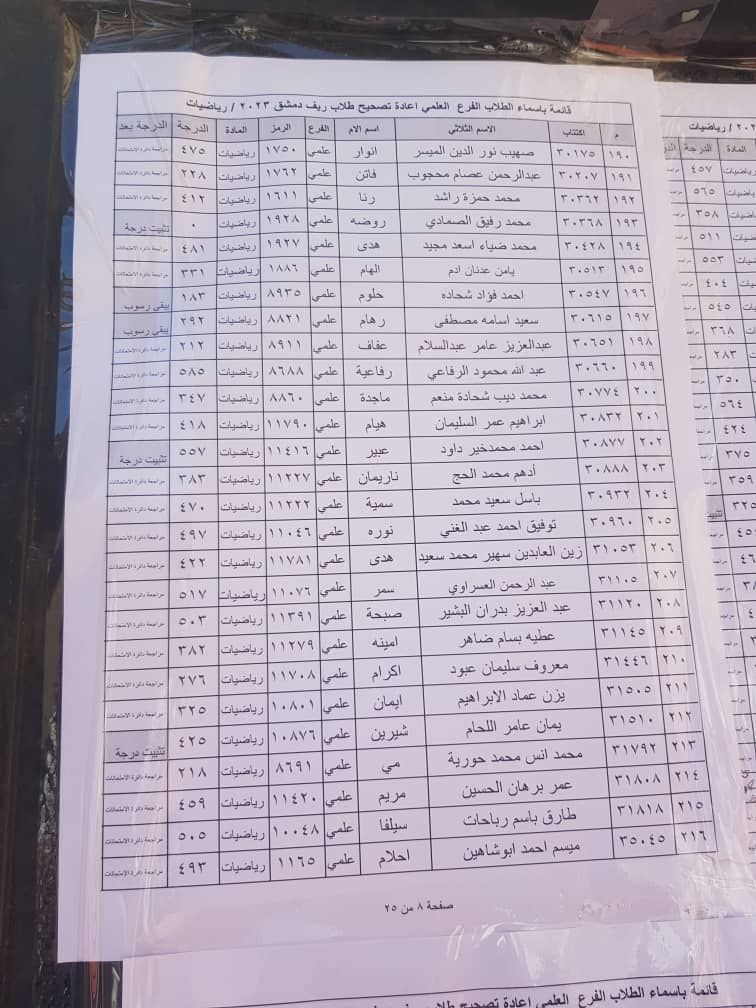 قائمة باسماء الطلاب الفرع العلمي اعادة تصحيح طلاب ريف دمشق ٢٠٢٣ / رياضيات
م اكتتاب الاسم الثلاثي اسم الام الفرع الرمز المادة الدرجة الدرجة بعد
١٩٠ ٣٠١٧٥ صهيب نور الدين الميسر انوار علمي ١٧٥٠ رياضيات ٤٧٥ مراجعة دائرة الامتحانات
١٩١ ٣٠٢٠٧ عبدالرحمن عصام محجوب فاتن علمي ١٧٦٢ رياضيات ٢٢٨ مراجعة دائرة الامتحانات
١٩٢ ٣٠٣٦٢ محمد حمزة راشد رنا علمي ١٦١١ رياضيات ٤١٢ مراجعة دائرة الامتحانات
١٩٣ ٣٠٣٦٨ محمد رفيق الصمادي روضه علمي ١٩٢٨ رياضيات ٠ تثبيت درجة
١٩٤ ٣٠٤٢٨ محمد ضياء اسعد مجيد هدى علمي ١٩٢٧ رياضيات ٤٨١ مراجعة دائرة الامتحانات
١٩٥ ٣٠٥١٣ يامن عدنان ادم الهام علمي ١٨٨٦ رياضيات ٣٣١ مراجعة دائرة الامتحانات
١٩٦ ٣٠٥٤٧ احمد فؤاد شحاده حلوم علمي ٨٩٣٥ رياضيات ١٨٣ يبقى رسوب
١٩٧ ٣٠٦١٥ سعيد اسامه مصطفى رهام علمي ٨٨٢١ رياضيات ٢٩٢ يبقى رسوب
١٩٨ ٣٠٦٥١ عبدالعزيز عامر عبدالسلام عفاف علمي ٨٩١١ رياضيات ٢١٢ مراجعة دائرة الامتحانات
١٩٩ ٣٠٦٦٠ عبد الله محمود الرفاعي رفاعية علمي ٨٦٨٨ رياضيات ٥٨٥ مراجعة دائرة الامتحانات
٢٠٠ ٣٠٧٧٤ محمد ديب شحادة منعم ماجدة علمي ٨٨٦٠ رياضيات ٣٤٧ مراجعة دائرة الامتحانات
٢٠١ ٣٠٨٣٢ ابراهيم عمر السليمان هيام علمي ١١٧٩٠ رياضيات ٤١٨ مراجعة دائرة الامتحانات
٢٠٢ ٣٠٨٧٧ احمد محمدخير داود عبير علمي ١١٤١٦ رياضيات ٥٥٧ تثبيت درجة
٢٠٣ ٣٠٨٨٨ أدهم محمد الحج ناريمان علمي ١١٢٢٧ رياضيات ٣٨٣ مراجعة دائرة الامتحانات
٢٠٤ ٣٠٩٣٢ باسل سعيد محمد سمية علمي ١١٢٢٢ رياضيات ٤٧٠ مراجعة دائرة الامتحانات
٢٠٥ ٣٠٩٦٠ توفيق احمد عبد الغني نوره علمي ١١٠٤٦ رياضيات ٤٩٧ مراجعة دائرة الامتحانات
٢٠٦ ٣١٠٥٣ زين العابدين سهير محمد سعيد هدى علمي ١١٧٨١ رياضيات ٤٢٢ مراجعة دائرة الامتحانات
٢٠٧ ٣١١٠٥ عبد الرحمن العسراوي سمر علمي ١١٠٧٦ رياضيات ٥١٧ مراجعة دائرة الامتحانات
٢٠٨ ٣١١٢٠ عبد العزيز بدران البشير صبحة علمي ١١٣٩١ رياضيات ٥٠٣ مراجعة دائرة الامتحانات
٢٠٩ ٣١١٤٥ عطيه بسام ضاهر امينه علمي ١١٢٧٩ رياضيات ٣٨٢ مراجعة دائرة الامتحانات
٢١٠ ٣١٤٤٦ معروف سليمان عبود اكرام علمي ١١٧٠٨ رياضيات ٢٧٦ مراجعة دائرة الامتحانات
٢١١ ٣١٥٠٥ يزن عماد الابراهيم ايمان علمي ١٠٨٠١ رياضيات ٣٢٥ مراجعة دائرة الامتحانات
٢١٢ ٣١٥١٠ يمان عامر اللحام شيرين علمي ١٠٨٧٦ رياضيات ٤٢٥ تثبيت درجة
٢١٣ ٣١٧٩٢ محمد انس محمد حورية مي علمي ٨٦٩١ رياضيات ٢١٨ مراجعة دائرة الامتحانات
٢١٤ ٣١٨٠٨ عمر برهان الحسين مريم علمي ١١٤٢٠ رياضيات ٤٥٩ مراجعة دائرة الامتحانات
٢١٥ ٣١٨١٨ طارق باسم رباحات سيلفا علمي ١٠٠٤٨ رياضيات ٥٠٥ مراجعة دائرة الامتحانات
٢١٦ ٣٥٠٤٥ ميسم احمد ابوشاهين احلام علمي ١١٦٥ رياضيات ٤٩٣ مراجعة دائرة الامتحانات
صفحة ٨ من ٢٥
قائمة باسماء الطلاب الفرع العلمي اعادة تصحيح